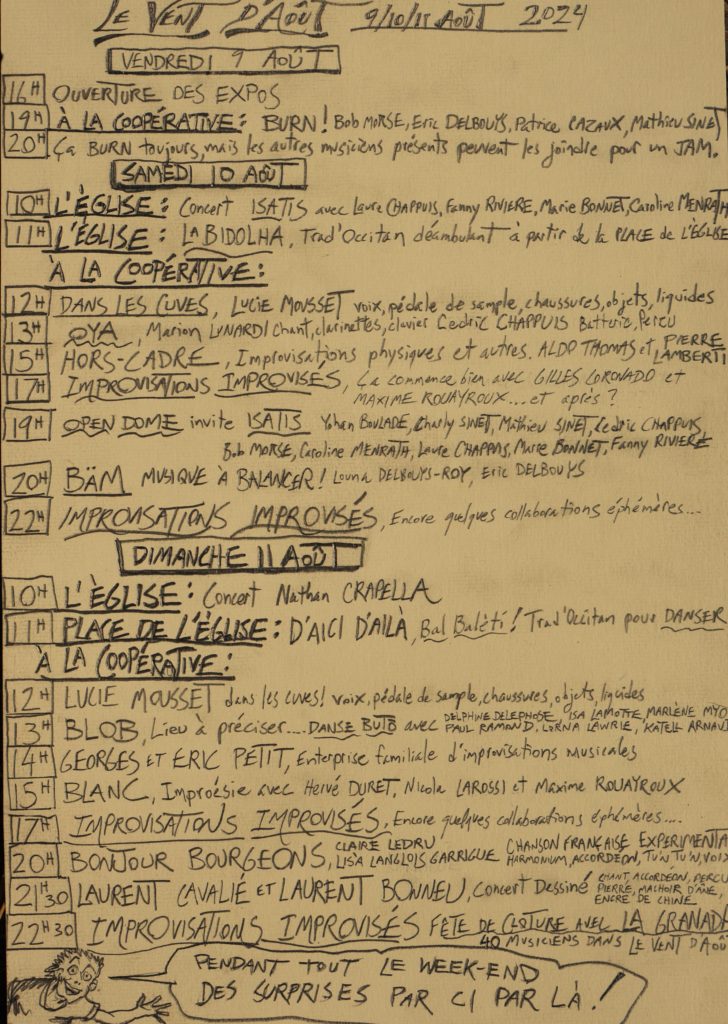 LE VENT D'AOÛT 9/10/11 AOÛT 2024
VENDREDI 9 AOÛT
16H OUVERTURE DES EXPOS
19H À LA COOPÉRATIVE: BURN! Bob MORSE, Eric DELBOUYS, Patrice CAZAUX, Mathieu SINET
20H Ça BURN toujours, mais les autres musiciens présents peuvent les joindre pour un JAM.
SAMEDI 10 AOÛT
10H L'ÉGLISE: Concert ISATIS avec Laure CHAPPUIS, Fanny RIVIERE, Marie BONNET, Caroline MENRATH
11H L'ÉGLISE: LA BIDOLHA, Trad'Occitan déambulant à partir de la PLACE de L'ÉGLISE
À LA COOPÉRATIVE:
12H DANS LES CUVES, LUCIE MOUSSET voix, pédale de sample, chaussures, objets, liquides
13H OYA, Marion LUNARDI Chant, clarinettes, clavier Cedric CHAPPUIS Batterie, Percu
15H HORS-CADRE, Improvisations physiques et autres. ALDO THOMAS et PIERRE LAMBERTI
17H IMPROVISATIONS IMPROVISÉS, Ça commence bien avec GILLES CORONADO et
MAXIME ROUAYROUX... et après?
19H OPEN DOME invite ISATIS Yohan BOULADE, Charly SINET, Mathieu SINET, Cedric CHAPPUIS,
Bob MORSE, Caroline MENRATH, Laure CHAPPUIS, Marie BONNET, Fanny RIVIERE
20H BÄM MUSIQUE À BALANCER! Louna DELBOUYS-ROY, Eric DELBOUYS
22H IMPROVISATIONS IMPROVISÉS, Encore quelques collaborations éphémères....
DIMANCHE 11 AOÛT
10H L'ÈGLISE: Concert Nathan CRAPELLA
11H PLACE DE L'ÉGLISE: D'AICI D'AILÀ, Bal Balèti! Trad'Occitan pour DANSER
À LA COOPÉRATIVE:
12H LUCIE MOUSSET dans les cuves! voix, pédale de sample, chaussures, objets, liquides
13H BLOB, Lieu à préciser.... DANSE BUTÔ avec DELPHINE DELEPHOSE, ISA LAMOTTE, MARLÈNE MYO
PAUL RAMOND, LORNA LAWRIE, KATELL ARNAU
14H GEORGES ET ERIC PETIT, Enterprise familiale d'improvisations musicales
15H BLANC, Improésie avec Hervé DURET, Nicola LAROSSI et Maxime ROUAYROUX
17H IMPROVISATIONS IMPROVISÉS, Encore quelques collaborations éphémères....
20H BONJOUR BOURGEONS, CLAIRE LEDRU CHANSON FRANÇAISE EXPERIMENTA
LISA LANGLOIS GARRIGUE HARMONIUM, ACCORDEON, TU'N TU'N, VOIX
21H30 LAURENT CAVALIÉ ET LAURENT BONNEU, Concert Dessiné CHANT, ACCORDEON, PERCU
PIERRE, MACHOIR D'ÂNE,
ENCRE DE CHINE
22H30 IMPROVISATIONS IMPROVISÉS FÊTE DE CLOTURE AVEC LA GRANADA
40 MUSICIENS DANS LE VENT D'AOÛ
PENDANT TOUT LE WEEK-END
DES SURPRISES PAR CI PAR LÀ!